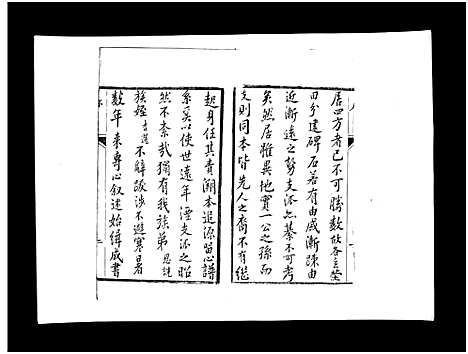 居四方者已不可勝數似各立塋
田分建碑石若有由戚漸踈由
近漸遠之勢支派亦綦不可考
矣然居雖異地實一公之孫而
支則同本皆先人之裔不有繼
起身任其責溯本追源留心譜
系奚以使世遠年湮支派之昭
然不紊哉猶有我族弟思謐
族姪 不辭跋涉不避寒暑者
數年來專心叙述始得成書